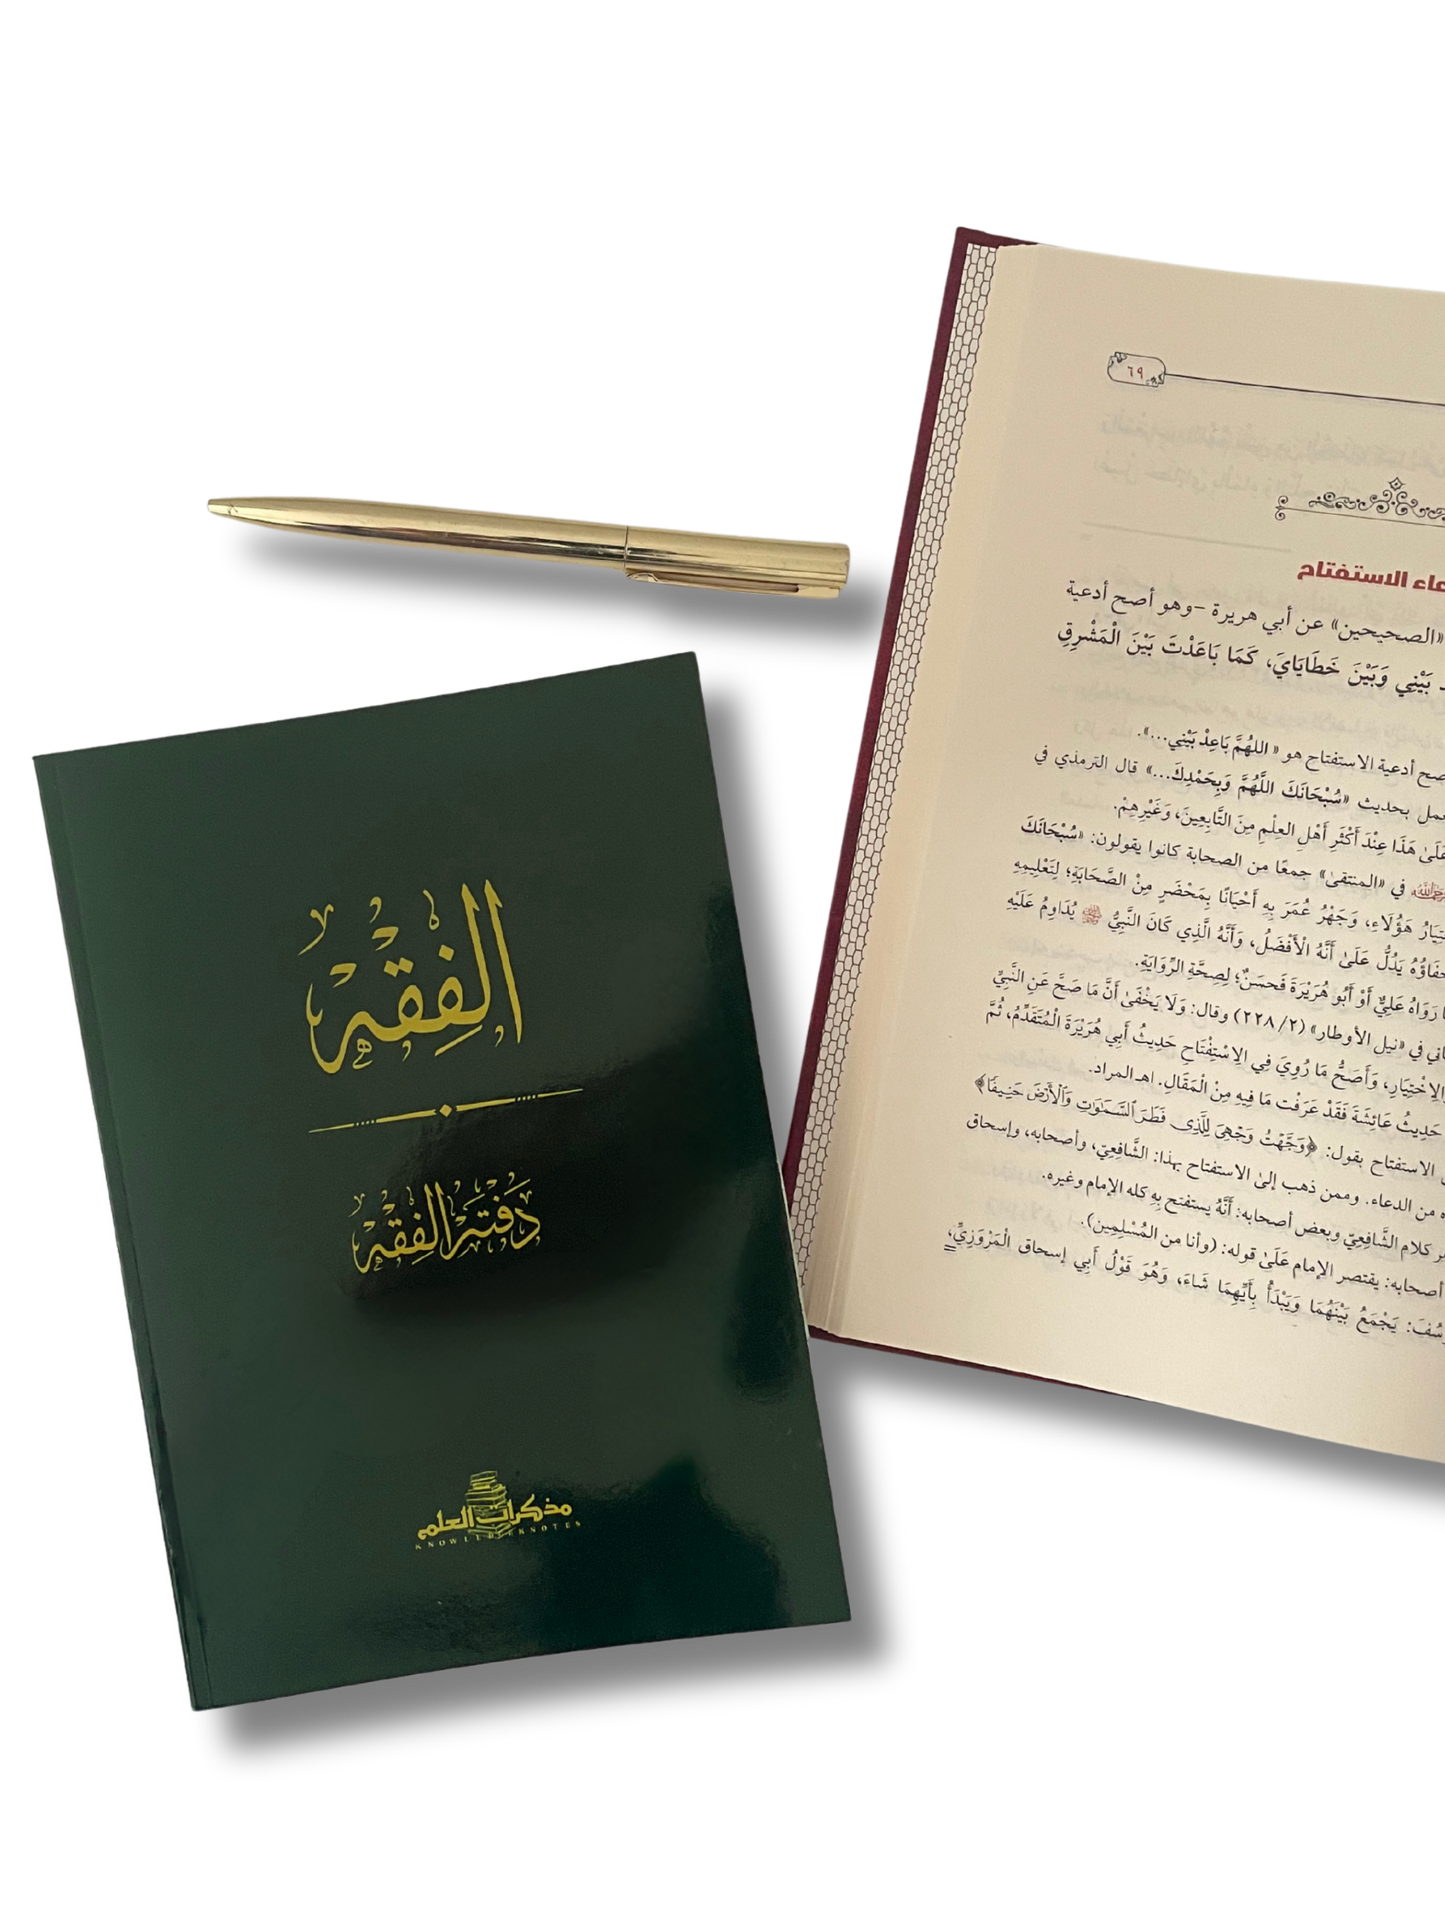 الفِقْه
دَفْتَر الفِقْه
مذكرات العلم
KNOWLEDGE NOTES
٦٩
الاستفتاح
«الصحيحين» عن أبي هريرة -وهو أصح أدعية
بَيْنِي وَبَيْنَ خَطَايَايَ، كَمَا بَاعَدْتَ بَيْنَ الْمَشْرِقِ
أدعية الاستفتاح هو «اللهُمَّ بَاعِدْ بَيْنِي...».
بحديث «سُبْحَانَكَ اللَّهُمَّ وَبِحَمْدِكَ...» قال الترمذي في
هَذَا عِنْدَ أَكْثَرِ أَهْلِ العِلْمِ مِنَ التَّابِعِينَ، وَغَيْرِهِمْ.
في «المنتقى» جمعًا من الصحابة كانوا يقولون: «سُبْحَانَكَ
هَؤُلَاءِ، وَجَهْرُ عُمَرَ بِهِ أَحْيَانًا بِمَحْضَرٍ مِنْ الصَّحَابَةِ؛ لِتَعْلِيمِهِ
يَدُلُّ عَلَىٰ أَنَّهُ الْأَفْضَلُ، وَأَنَّهُ الَّذِي كَانَ النَّبِيُّ ﷺ يُدَاوِمُ عَلَيْهِ
رَوَاهُ عَلِيٌّ أَوْ أَبُو هُرَيْرَةَ فَحَسَنٌ؛ لِصِحَّةِ الرِّوَايَةِ.
في «نيل الأوطار» (٢/ ٢٢٨) وقال: وَلَا يَخْفَىٰ أَنَّ مَا صَحَّ عَنِ النَّبِيِّ
وَأَصَحُّ مَا رُوِيَ فِي الِاسْتِفْتَاحِ حَدِيثُ أَبِي هُرَيْرَةَ الْمُتَقَدِّمُ، ثُمَّ
حَدِيثُ عَائِشَةَ فَقَدْ عَرَفْت مَا فِيهِ مِنْ الْمَقَالِ. اهـ المراد.
الاستفتاح بقول: ﴿وَجَّهْتُ وَجْهِيَ لِلَّذِي فَطَرَ السَّمَٰوَٰتِ وَالْأَرْضَ حَنِيفًا﴾
من الدعاء. وممن ذهب إلىٰ الاستفتاح بهذا: الشَّافِعِيّ، وأصحابه، وإسحاق
كلام الشَّافِعِيّ وبعض أصحابه: أَنَّهُ يستفتح بِهِ كله الإمام وغيره.
أصحابه: يقتصر الإمام عَلَىٰ قوله: (وأنا من المُسْلِمِين).
يَجْمَعُ بَيْنَهُمَا وَيَبْدَأُ بِأَيِّهِمَا شَاءَ، وَهُوَ قَوْلُ أَبِي إسحاق الْمَرْوَزِيِّ،